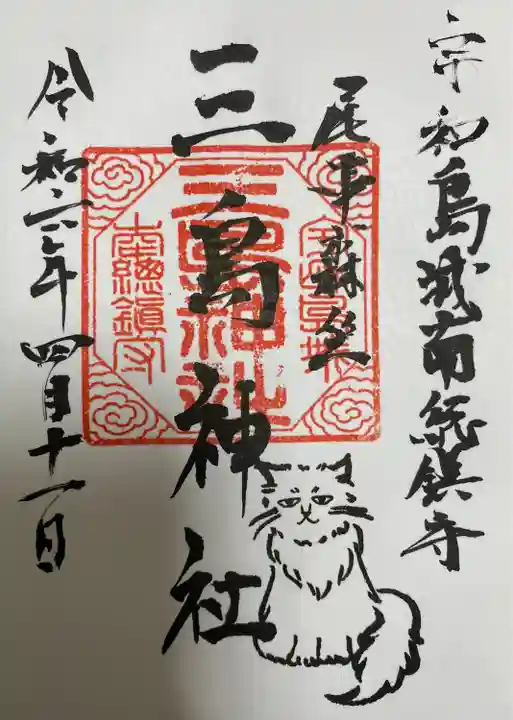 宇和島城南総鎮守
尾平森鎮座
三島神社
令和六年四月十一日
三島神社
南総鎮守